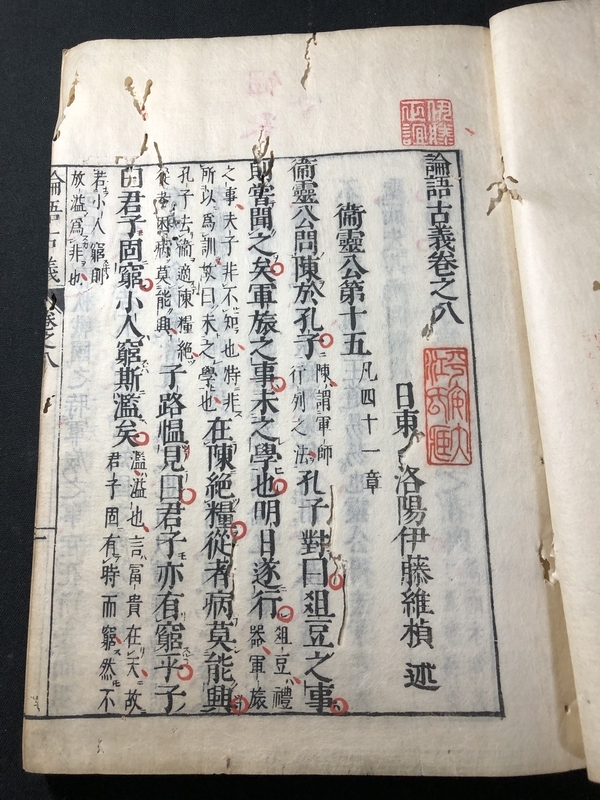 論語古義卷之八
日東 洛陽伊藤維楨 述
衛靈公第十五 凡四十一章
衛靈公問陳於孔子
陳謂軍師
行列之法
孔子對曰俎豆之事
則嘗聞之矣軍旅之事未之學也明日遂行
俎豆禮
器軍旅
之事夫子非不知也特非
所以爲訓故曰未之學也
在陳絕糧從者病莫能興
孔子去衛適陳糧絕
從者困病莫能興
子路慍見曰君子亦有窮乎子
曰君子固窮小人窮斯濫矣
濫溢也言富貴在天故
君子固有時而窮然不
若小人窮則
放溢爲非也
論語古義 卷之八